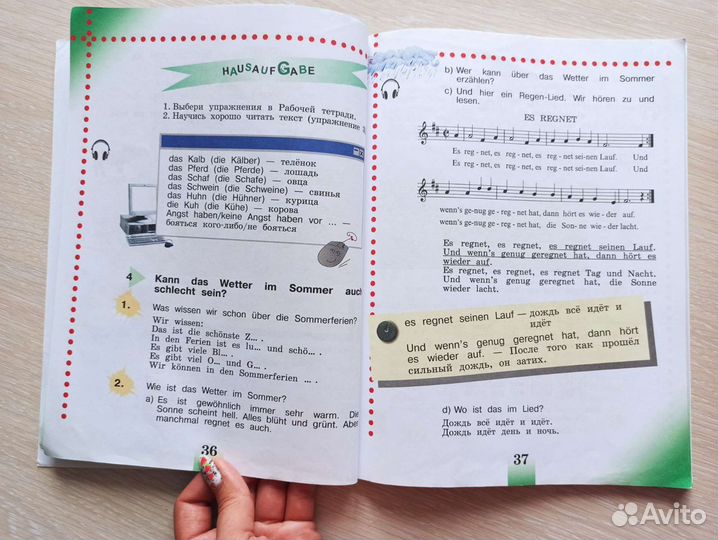 HAUSAUFGABE
1. Выбери упражнения в Рабочей тетради.
2. Научись хорошо читать текст (упражнение
das Kalb (die Kälber) — телёнок
das Pferd (die Pferde) — лошадь
das Schaf (die Schafe) — овца
das Schwein (die Schweine) — свинья
das Huhn (die Hühner) — курица
die Kuh (die Kühe) — корова
Angst haben/keine Angst haben vor ... —
бояться кого-либо/не бояться
4 Kann das Wetter im Sommer auch
schlecht sein?
1.
Was wissen wir schon über die Sommerferien?
Wir wissen:
Das ist die schönste Z... .
In den Ferien ist es lu... und schö... .
Es gibt viele Bl... .
Es gibt viel O... und G... .
Wir können in den Sommerferien ... .
2.
Wie ist das Wetter im Sommer?
a) Es ist gewöhnlich immer sehr warm. Die
Sonne scheint hell. Alles blüht und grünt. Aber
manchmal regnet es auch.
36
b) Wer kann über das Wetter im Sommer
erzählen?
c) Und hier ein Regen-Lied. Wir hören zu und
lesen.
ES REGNET
Es reg - net, es reg - net, es reg - net sei-nen Lauf. Und
Es reg - net, es reg - net, es reg - net sei-nen Lauf. Und
wenn's ge-nug ge - reg - net hat, dann hört es wie - der auf.
wenn's ge-nug ge - reg - net hat, die Son- ne wie - der lacht.
Es regnet, es regnet, es regnet seinen Lauf.
Und wenn's genug geregnet hat, dann hört es
wieder auf.
Es regnet, es regnet, es regnet Tag und Nacht.
Und wenn's genug geregnet hat, die Sonne
wieder lacht.
es regnet seinen Lauf — дождь всё идёт и
идёт
Und wenn's genug geregnet hat, dann hört
es wieder auf. — После того как прошёл
сильный дождь, он затих.
d) Wo ist das im Lied?
Дождь всё идёт и идёт.
Дождь идёт день и ночь.
37
Avito